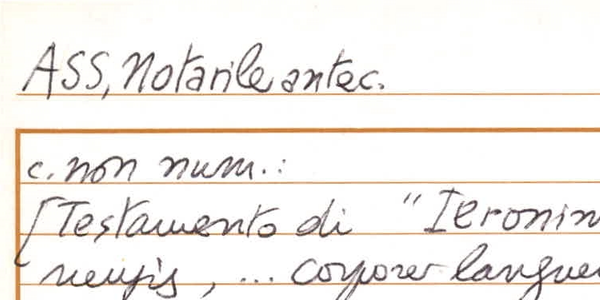 ASS, Notarile antec.
c. non num.:
[Testamento di "Ieronim
, ... corpore langue